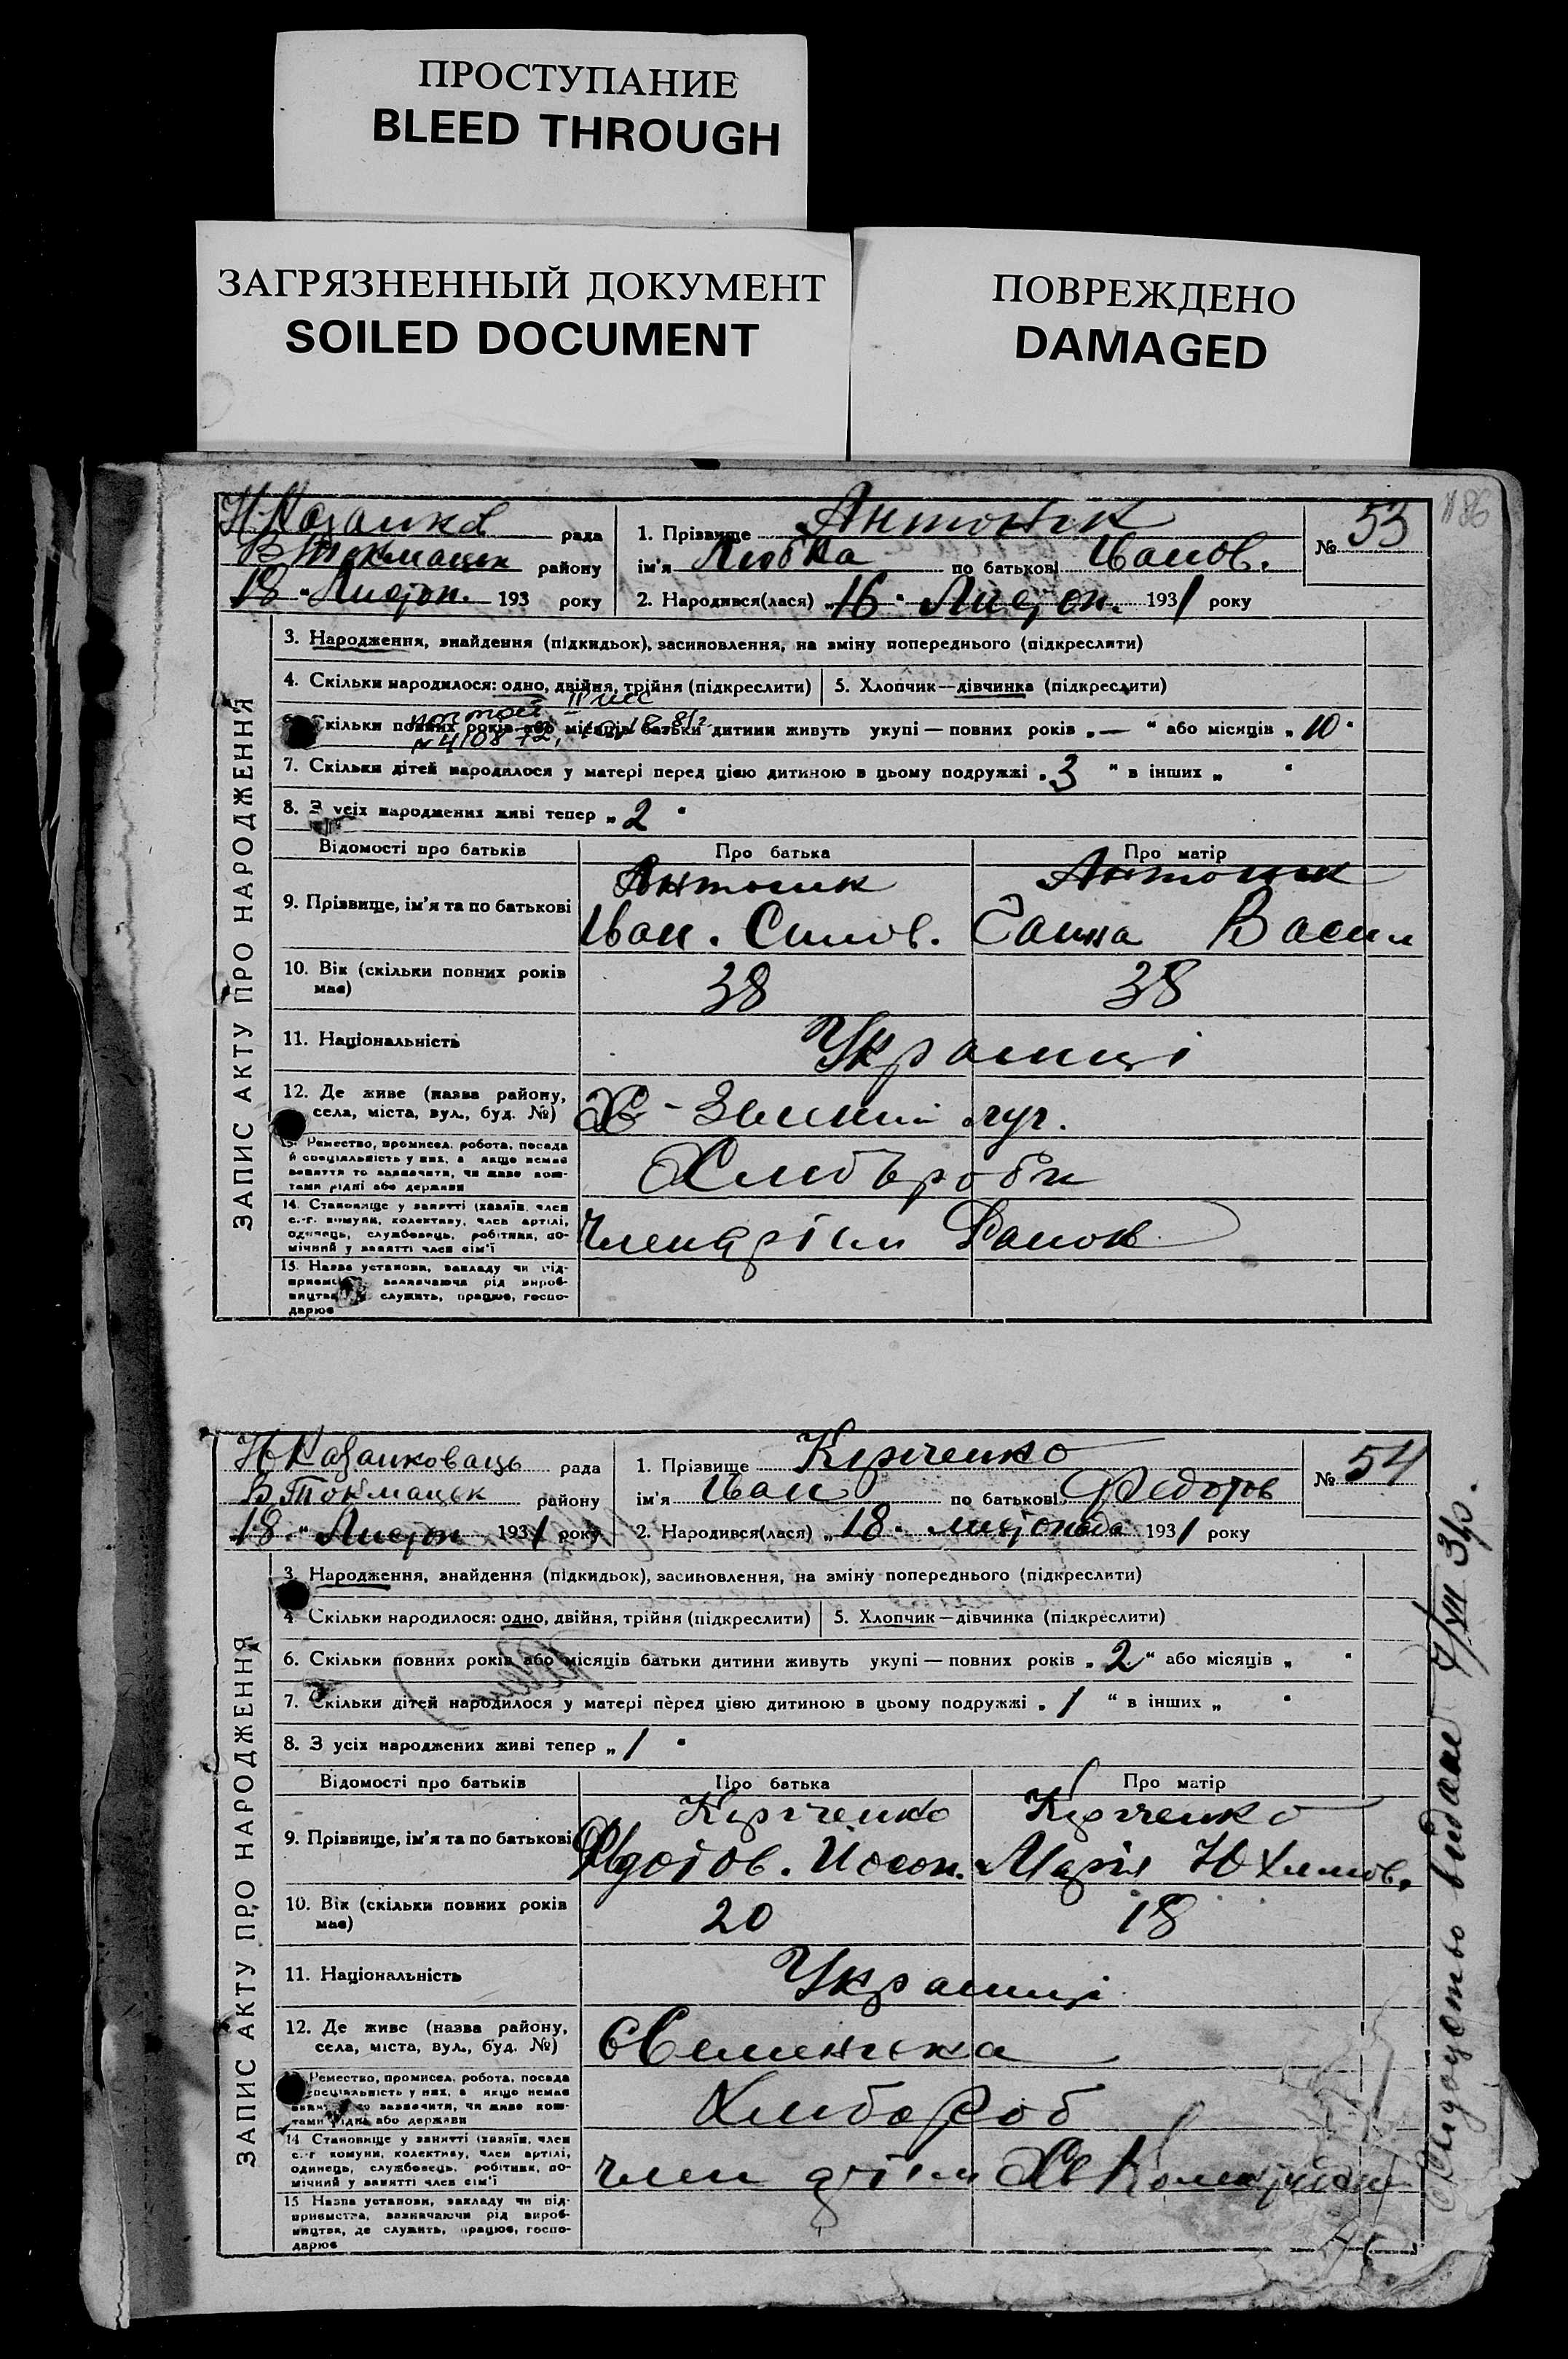 ПРОСТУПАНИЕ
BLEED THROUGH
ЗАГРЯЗНЕННЫЙ ДОКУМЕНТ
SOILED DOCUMENT
ПОВРЕЖДЕНО
DAMAGED
рада
В Токмацьк району
18 " Листоп. 193 року
1. Прізвище Антоник
ім'я Любка по батькові Іванов.
2. Народився(лася) „16" Листоп. 1931 року
№ 53
ЗАПИС АКТУ ПРО НАРОДЖЕННЯ
3. Народження, знайдення (підкидьок), засиновлення, на зміну попереднього (підкреслити)
4. Скільки народилося: одно, двійня, трійня (підкреслити) 5. Хлопчик—дівчинка (підкреслити)
6. Скільки повних років або місяців батьки дитини живуть укупі — повних років „—" або місяців „10"
7. Скільки дітей народилося у матері перед цією дитиною в цьому подружжі „3" в інших „ "
8. З усіх народжених живі тепер „2"
Відомості про батьків Про батька Про матір
9. Прізвище, ім'я та по батькові
Антоник Антоник
Іван. Симов. Ганна Васил
10. Вік (скільки повних років має) 38 38
11. Національність Українці
12. Де живе (назва району, села, міста, вул., буд. №)
13. Ремество, промисел, робота, посада й спеціяльність у них, а якщо немає заняття то зазначити, чи живе коштами рідні або держави
14. Становище у занятті (хазяїн, член с.-г. комуни, колективу, член артілі, одинець, службовець, робітник, помічний у занятті член сім'ї
15. Назва установи, закладу чи підприємства, зазначаючи рід виробництва, де служить, працює, господарює
Н Казанковаць рада
В Токмацьк району
18 " Листоп 1931 року
1. Прізвище Кірченко
ім'я Іван по батькові Федотов
2. Народився(лася) „18" листопада 1931 року
№ 54
ЗАПИС АКТУ ПРО НАРОДЖЕННЯ
3. Народження, знайдення (підкидьок), засиновлення, на зміну попереднього (підкреслити)
4. Скільки народилося: одно, двійня, трійня (підкреслити) 5. Хлопчик—дівчинка (підкреслити)
6. Скільки повних років або місяців батьки дитини живуть укупі — повних років „2" або місяців „ "
7. Скільки дітей народилося у матері перед цією дитиною в цьому подружжі „1" в інших „ "
8. З усіх народжених живі тепер „1"
Відомості про батьків Про батька Про матір
9. Прізвище, ім'я та по батькові
Кірченко Кірченко
Марія Юхимов.
10. Вік (скільки повних років має) 20 18
11. Національність Українці
12. Де живе (назва району, села, міста, вул., буд. №)
13. Ремество, промисел, робота, посада й спеціяльність у них, а якщо немає заняття то зазначити, чи живе коштами рідні або держави
Хлібороб
14. Становище у занятті (хазяїн, член с.-г. комуни, колективу, член артілі, одинець, службовець, робітник, помічний у занятті член сім'ї
член
15. Назва установи, закладу чи підприємства, зазначаючи рід виробництва, де служить, працює, господарює